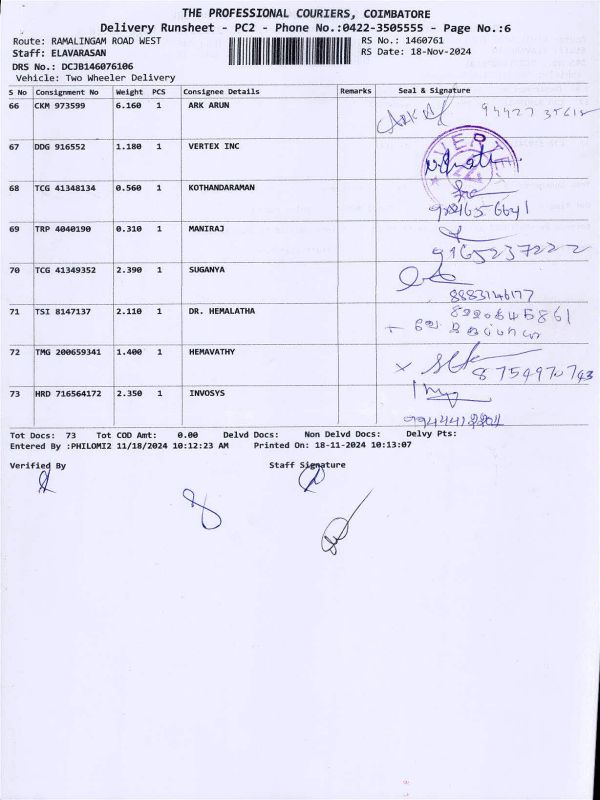 THE PROFESSIONAL COURIERS, COIMBATORE
Delivery Runsheet - PC2 - Phone No.:0422-3505555 - Page No.:6
Route: RAMALINGAM ROAD WEST RS No.: 1460761
Staff: ELAVARASAN RS Date: 18-Nov-2024
DRS No.: DCJB146076106
Vehicle: Two Wheeler Delivery
S No Consignment No Weight PCS Consignee Details Remarks Seal & Signature
66 CKM 973599 6.160 1 ARK ARUN
67 DDG 916552 1.180 1 VERTEX INC
VERTEX
68 TCG 41348134 0.560 1 KOTHANDARAMAN
69 TRP 4040190 0.310 1 MANIRAJ
9165237222
70 TCG 41349352 2.390 1 SUGANYA
8883146177
71 TSI 8147137 2.110 1 DR. HEMALATHA
8220645861
72 TMG 200659341 1.400 1 HEMAVATHY
8754970743
73 HRD 716564172 2.350 1 INVOSYS
Tot Docs: 73 Tot COD Amt: 0.00 Delvd Docs: Non Delvd Docs: Delvy Pts:
Entered By :PHILOMI2 11/18/2024 10:12:23 AM Printed On: 18-11-2024 10:13:07
Verified By Staff Signature